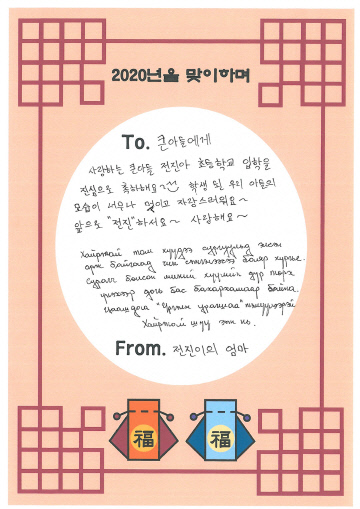 2020년을 맞이하며
To. 큰아들에게
사랑하는 큰아들 전진아 초등학교 입학을
진심으로 축하해요~ 학생 된 우리 아들의
모습이 너무나 멋있고 자랑스러워요~
앞으로 "전진"하서요~ 사랑해요~
Хайртай том хүүдээ сургуульд
байгаад баяр хүргье.
Сурагч болсон миний хүүгийн дүр төрх
үнэхээр бас бахархмаар байна.
Цаашдаа "Урагши урагшаа"
Хайртай шүү ээж нь.
From. 전진이의 엄마
福
福